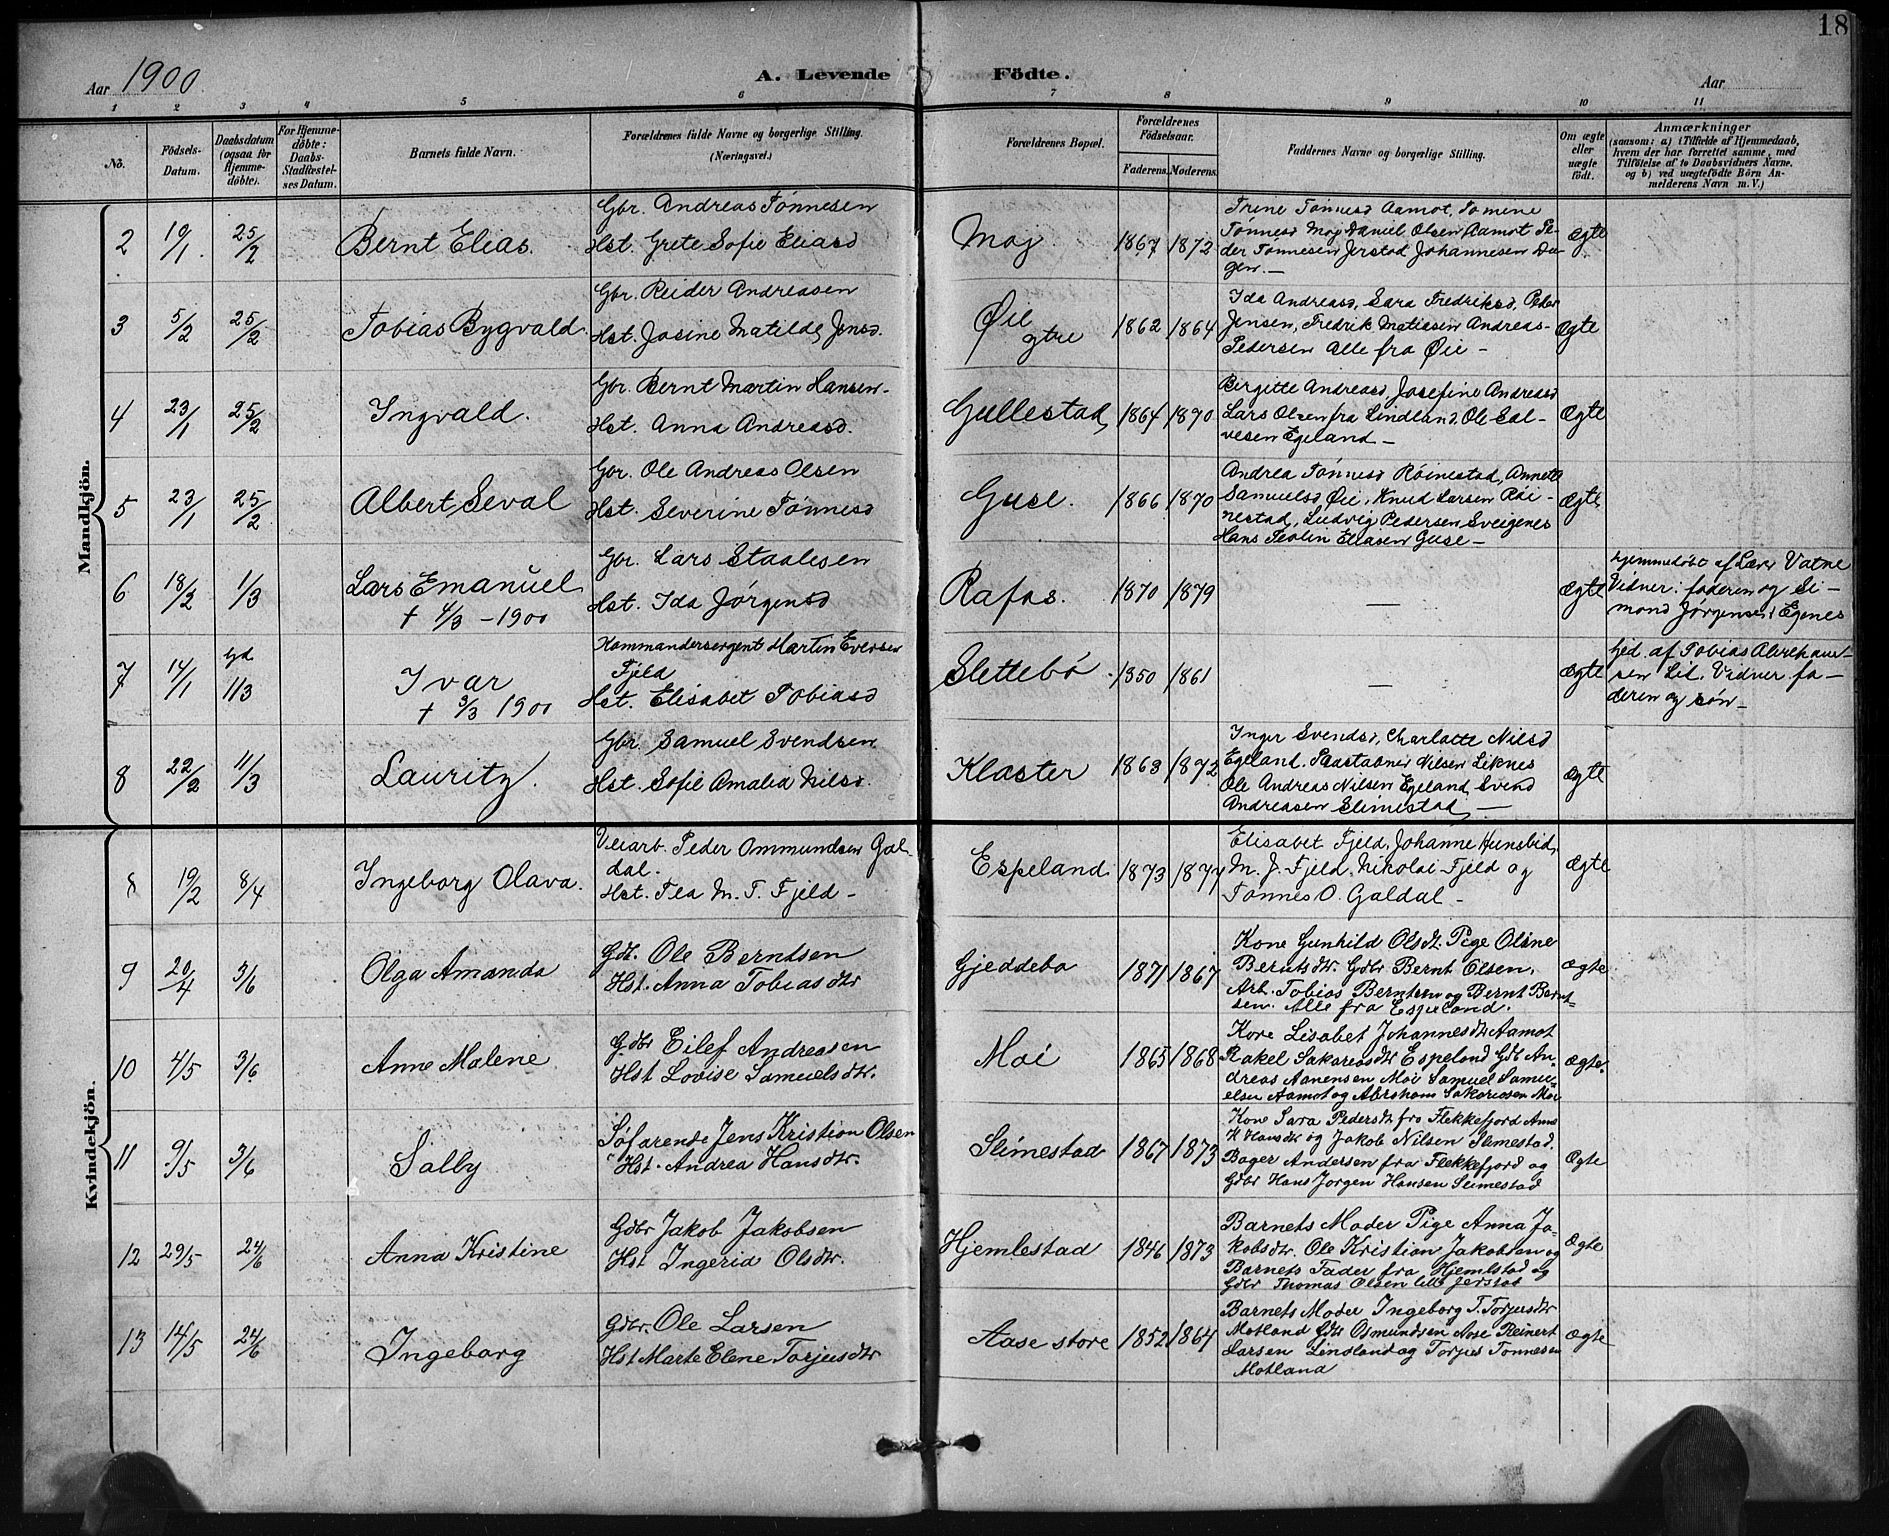 18
Aar 1900
A. Levende Födte.
Aar
1 2 3 4 5 6 7 8 9 10 11
No.
Födsels-Datum.
Daabsdatum (ogsaa for Hjemmedöbte).
For Hjemmedöbte: Daabs-Stadfæstelses Datum.
Barnets fulde Navn.
Forældrenes fulde Navne og borgerlige Stilling. (Næringsvei.)
Forældrenes Bopæl.
Forældrenes Födselsaar.
Faderens. Moderens.
Faddernes Navne og borgerlige Stilling.
Om ægte eller uægte födt.
Anmærkninger
(saasom: a) i Tilfælde af Hjemmedaab, hvem der har forrettet samme, med Tilföielse af to Daabsvidners Navne, og b) ved uægtefödte Börn Anmelderens Navn m. V.)
Mandkjön.
2 19/1 25/2 Bernt Elias.
Gbr. Andreas Tønnesen
Hst. Grete Sofie Eliasd
Moj 1867 1872
Trine Tønnesd Aamot, Tomine
Tønnesd Moj Daniel Olsen Aamot Pe-
der Tønnesen Jerstad Johannesen Du-
gen. —
Ægte
3 5/2 25/2 Tobias Bygvald.
Gbr. Reider Andreasen
Hst. Josine Matilde Jensd.
Øie ytre 1862 1864
Ida Andreasd, Sara Fredriksd, Peder
Jensen, Fredrik Matiasen Andreas-
Pedersen Alle fra Øie —
Ægte
4 23/1 25/2 Ingvald.
Gbr. Bernt Martin Hansen.
Hst. Anna Andreasd.
Gullestad 1864 1870
Birgitte Andreasd, Josefine Andreasd
Lars Olsen fra Lindland. Ole Sal-
vesen Egeland —
Ægte
5 23/1 25/2 Albert Seval
Gbr. Ole Andreas Olsen
Hst. Severine Tønnesd
Guse. 1866 1870
Andrea Tønnesd Röinestad, Annette
Samuelsd Øie, Knud Larsen Röi-
nestad, Ludvig Pedersen Sveigenes
Hans Teolin Eliasen Guse —
Ægte
6 18/2 1/3 Lars Emanuel
† 4/3 – 1900
Gbr. Lars Staalesen
Hst. Ida Jørgensd
Rafos. 1870 1879
—
Ægte
Hjemmedøbt af Lærer Vatne
Vidner: faderen og Si-
mond Jørgensen Egenes
7 14/1 hjd 11/3 Ivar
† 3/3 1900
Kommandersergent Martin Eversen
Fjeld
Hst. Elisabet Tobiasd
Slettebö 1850 1861
—
Ægte
hjd. af Tobias Abraham-
sen Lil. Vidner fa-
deren og søn —
8 22/2 11/3 Lauritz.
Gbr. Samuel Svendsen
Hst. Sofie Amalia Nilsd.
Kloster 1863 1872
Inger Svendsd, Charlotte Nilsd
Egeland. Nilsen Liknes
Ole Andreas Nilsen Egeland Svend
Andreasen Slimestad —
Ægte
Kvindekjön.
8 19/2 8/4 Ingeborg Olava.
Veiarb. Peder Ommundsen Gal-
dal.
Hst. Tea M. T. Fjeld —
Espeland 1873 1877
Elisabet Fjeld, Johanne Hunsbid,
M. J. Fjeld, Nikolai Fjeld og
Tønnes O. Galdal —
Ægte
9 20/4 3/6 Olga Amanda
Gdb. Ole Berntsen
Hst. Anna Tobiasdtr
Gjeddebo 1871 1867
Kone Gunhild Olsdtr. Pige Olene
Berntsdtr. Gdbr Bernt Olsen.
Arb. Tobias Berntsen og Bernt Bernt-
sen. Alle fra Espeland.
Ægte
10 4/5 3/6 Anne Malene
Gdbr Eilef Andreasen
Hst Lovise Samuelsdtr.
Moi 1865 1868
Kone Lisabet Johannesdtr Aamot
Rakel Sakariasdtr Espeland Gdb An-
dreas Aanensen Moi Samuel Samu-
elsen Aamot og Abraham Sakariasen Moi
Ægte.
11 9/5 3/6 Salby
Søfarende Jens Kristian Olsen
Hst. Andrea Hansdtr.
Slimestad 1867 1873
Kone Sara Pedersdtr fra Flekkefjord Anne
K Hansdtr og Jakob Nilsen Slimestad.
Bager Andersen fra Flekkefjord og
Gdbr Hans Jørgen Hansen Slimestad
Ægte
12 29/5 24/6 Anna Kristine
Gdbr Jakob Jakobsen
Hst Ingeria Olsdtr.
Hjemlestad 1846 1873
Barnets Moder Pige Anna Ja-
kobsdtr. Ole Kristian Jakobsen og
Barnets Fader fra Hjemlstad og
Gdbr Thomas Olsen lille Jerstad
Ægte
13 14/5 24/6 Ingeborg
Gdbr. Ole Larsen
Hst Marte Elene Torjusdtr
Aase store 1852 1864
Barnets Moder Ingeborg T. Torjusdtr
Motland Gdbr Osmundsen Aase Reinert
Larsen Lindland og Torjus Tønnesen
Motland
Ægte